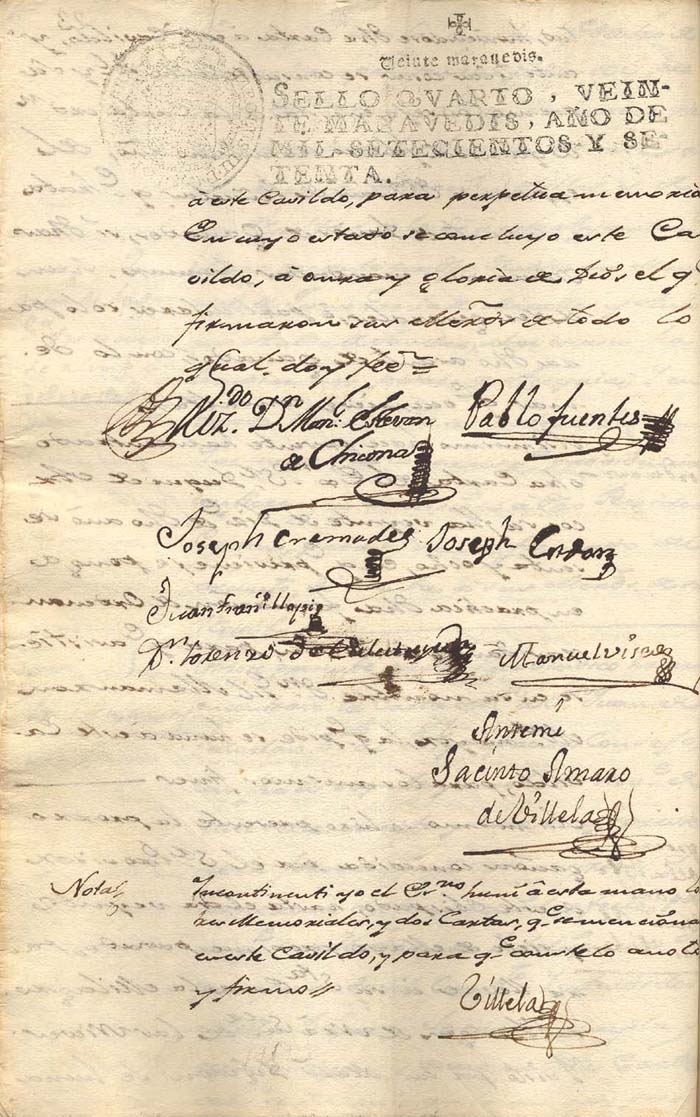 Veinte maravedis.
SELLO QVARTO, VEIN-
TE MARAVEDIS, AÑO DE
MIL SETECIENTOS Y SE-
TENTA.
à este Cavildo, para perpetua memoria
En cuyo estado se concluyo este Ca
vildo, à onra y gloria de Dios el q
firmaron sus Merc̃s de todo lo
qual doy fee=
Liz.do Dn Manl Estevan
de Chicona
Pablo fuentes
Joseph Cremades
Joseph
Juan Franco
Dn Lorenzo de
Manuel
Antemi
Jacinto Amaro
de Villela
Nota
Incontinenti yo el Srno huni à esta mano lo
res Memoriales, y dos Cartas, qe se menciona
en este Cavildo, y para qe conste lo anoto
y firmo
Villela